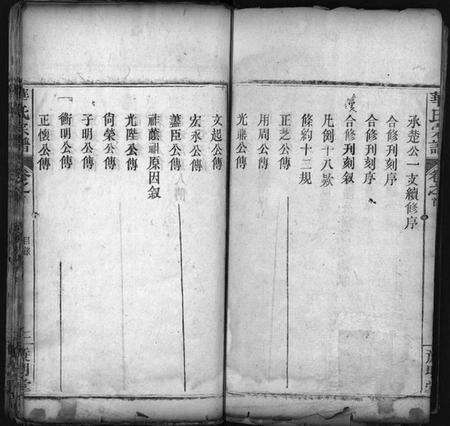 承楚公一支續修序
合修刊刻序
合修刊刻序
合修刊刻叙
凡例十八欵
條約十三規
正芝公傳
用周公傳
光 公傳
文起公傳
宏永公傳
藎臣公傳
祖 原因叙
光陞公傳
尚榮公傳
子明公傳
衡明公傳
正懷公傳
華氏宗譜
華氏宗譜
目錄